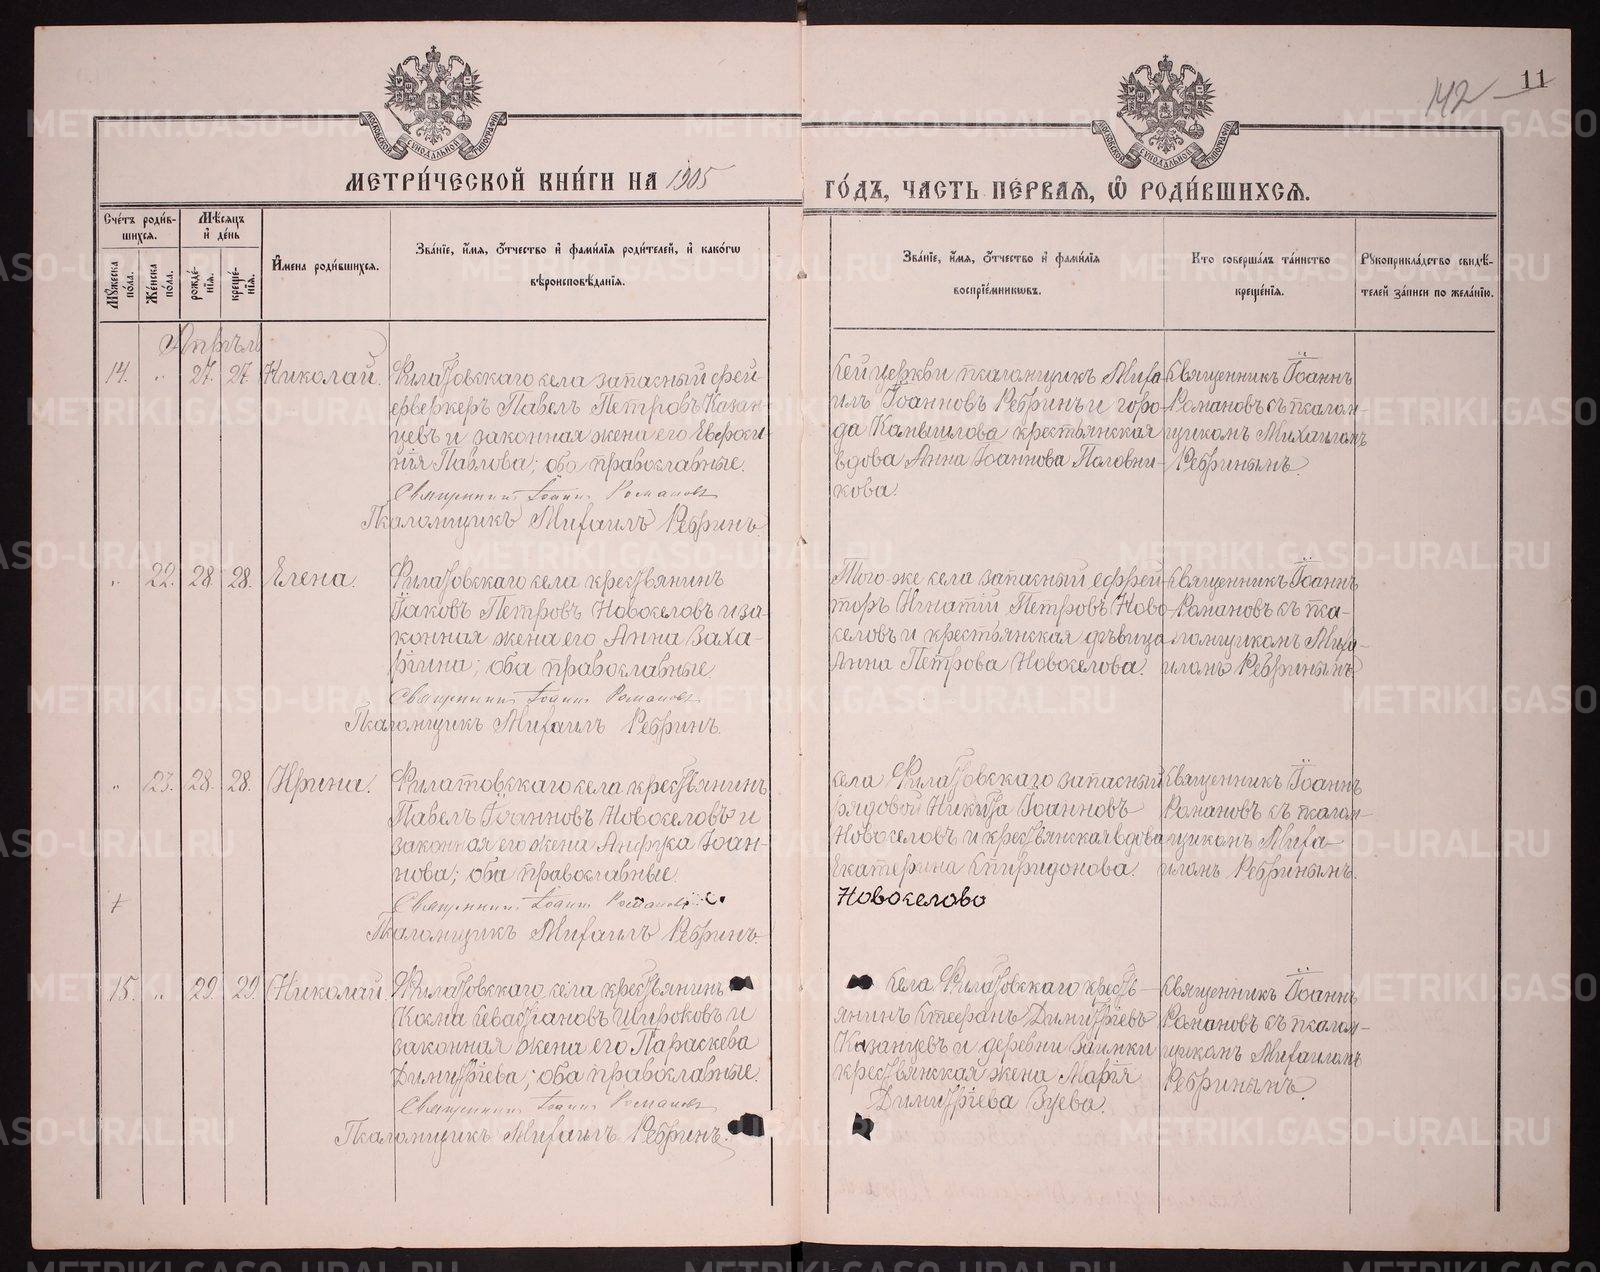 142 11
МОСКОВСКОЙ СѴНОДАЛЬНОЙ ТИПОГРАФІИ
МОСКОВСКОЙ СѴНОДАЛЬНОЙ ТИПОГРАФІИ
МЕТРИ́ЧЕСКОЙ КНИ́ГИ НА 1905
ГО́ДЪ, ЧАСТЬ ПЕ́РВАЯ, Ѽ РОДИ́ВШИХСЯ.
Сче́тъ роди́в-
шихся.
Мѣ́сяцъ
и҆ де́нь
Мꙋ́жеска
по́ла.
Же́нска
по́ла.
рожде́-
нїя.
креще́-
нїя.
И҆мена роди́вшихся.
Зва́нїе, и҆́мя, ѻ҆́тчество и҆ фами́лїя роди́телей, и҆ како́гѡ
вѣроисповѣ́данїя.
Зва́нїе, и҆́мя, ѻ҆́тчество и҆ фами́лїя
воспрїе́мникѡвъ.
Кто соверша́лъ та́инство
креще́нїя.
Рꙋкоприкла́дство свидѣ́-
телей за́писи по жела́нїю.
Апрѣль
14. „ 27. 27. Николай.
Филатовскаго села запасный фей-
ерверкеръ Павелъ Петровъ Казан-
цевъ и законная жена его Евфроси-
нія Павлова; оба православные.
Священникъ Іоаннъ Романовъ
Псаломщикъ Михаилъ Ребринъ.
сей церкви псаломщикъ Миха-
илъ Іоанновъ Ребринъ и горо-
да Камышлова крестьянская
вдова Анна Іоаннова Половни-
кова.
Священникъ Іоаннъ
Романовъ съ псалом-
щикомъ Михаиломъ
Ребринымъ
„ 22. 28. 28. Елена.
Филатовскаго села крестьянинъ
Іаковъ Петровъ Новоселовъ и за-
конная жена его Анна Заха-
ріина; оба православные.
Священникъ Іоаннъ Романовъ
Псаломщикъ Михаилъ Ребринъ.
Того-же села запасный ефрей-
торъ Игнатій Петровъ Ново-
селовъ и крестьянская дѣвица
Анна Петрова Новоселова.
Священникъ Іоаннъ
Романовъ съ пса-
ломщикомъ Миха-
иломъ Ребринымъ
„ 23. 28. 28. Ирина.
Филатовскаго села крестьянинъ
Павелъ Іоанновъ Новоселовъ и
законная его жена Анфуса Іоан-
нова; оба православные.
Священникъ Іоаннъ Романовъ
Псаломщикъ Михаилъ Ребринъ.
села Филатовскаго запасный
рядовой Никита Іоанновъ
Новоселовъ и крестьянская вдова
Екатерина Спиридонова.
Новоселово
Священникъ Іоаннъ
Романовъ съ псалом-
щикомъ Миха-
иломъ Ребринымъ.
+
15. „ 29. 29. Николай.
Филатовскаго села крестьянинъ
Косма Севастіановъ Широковъ и
законная жена его Параскева
Димитріева; оба православные.
Священникъ Іоаннъ Романовъ
Псаломщикъ Михаилъ Ребринъ.
села Филатовскаго кресть-
янинъ Стефанъ Димитріевъ
Казанцевъ и деревни Заимки
крестьянская жена Марія
Димитріева Зуева.
Священникъ Іоаннъ
Романовъ съ псалом-
щикомъ Михаиломъ
Ребринымъ.
METRIKI.GASO-URAL.RU